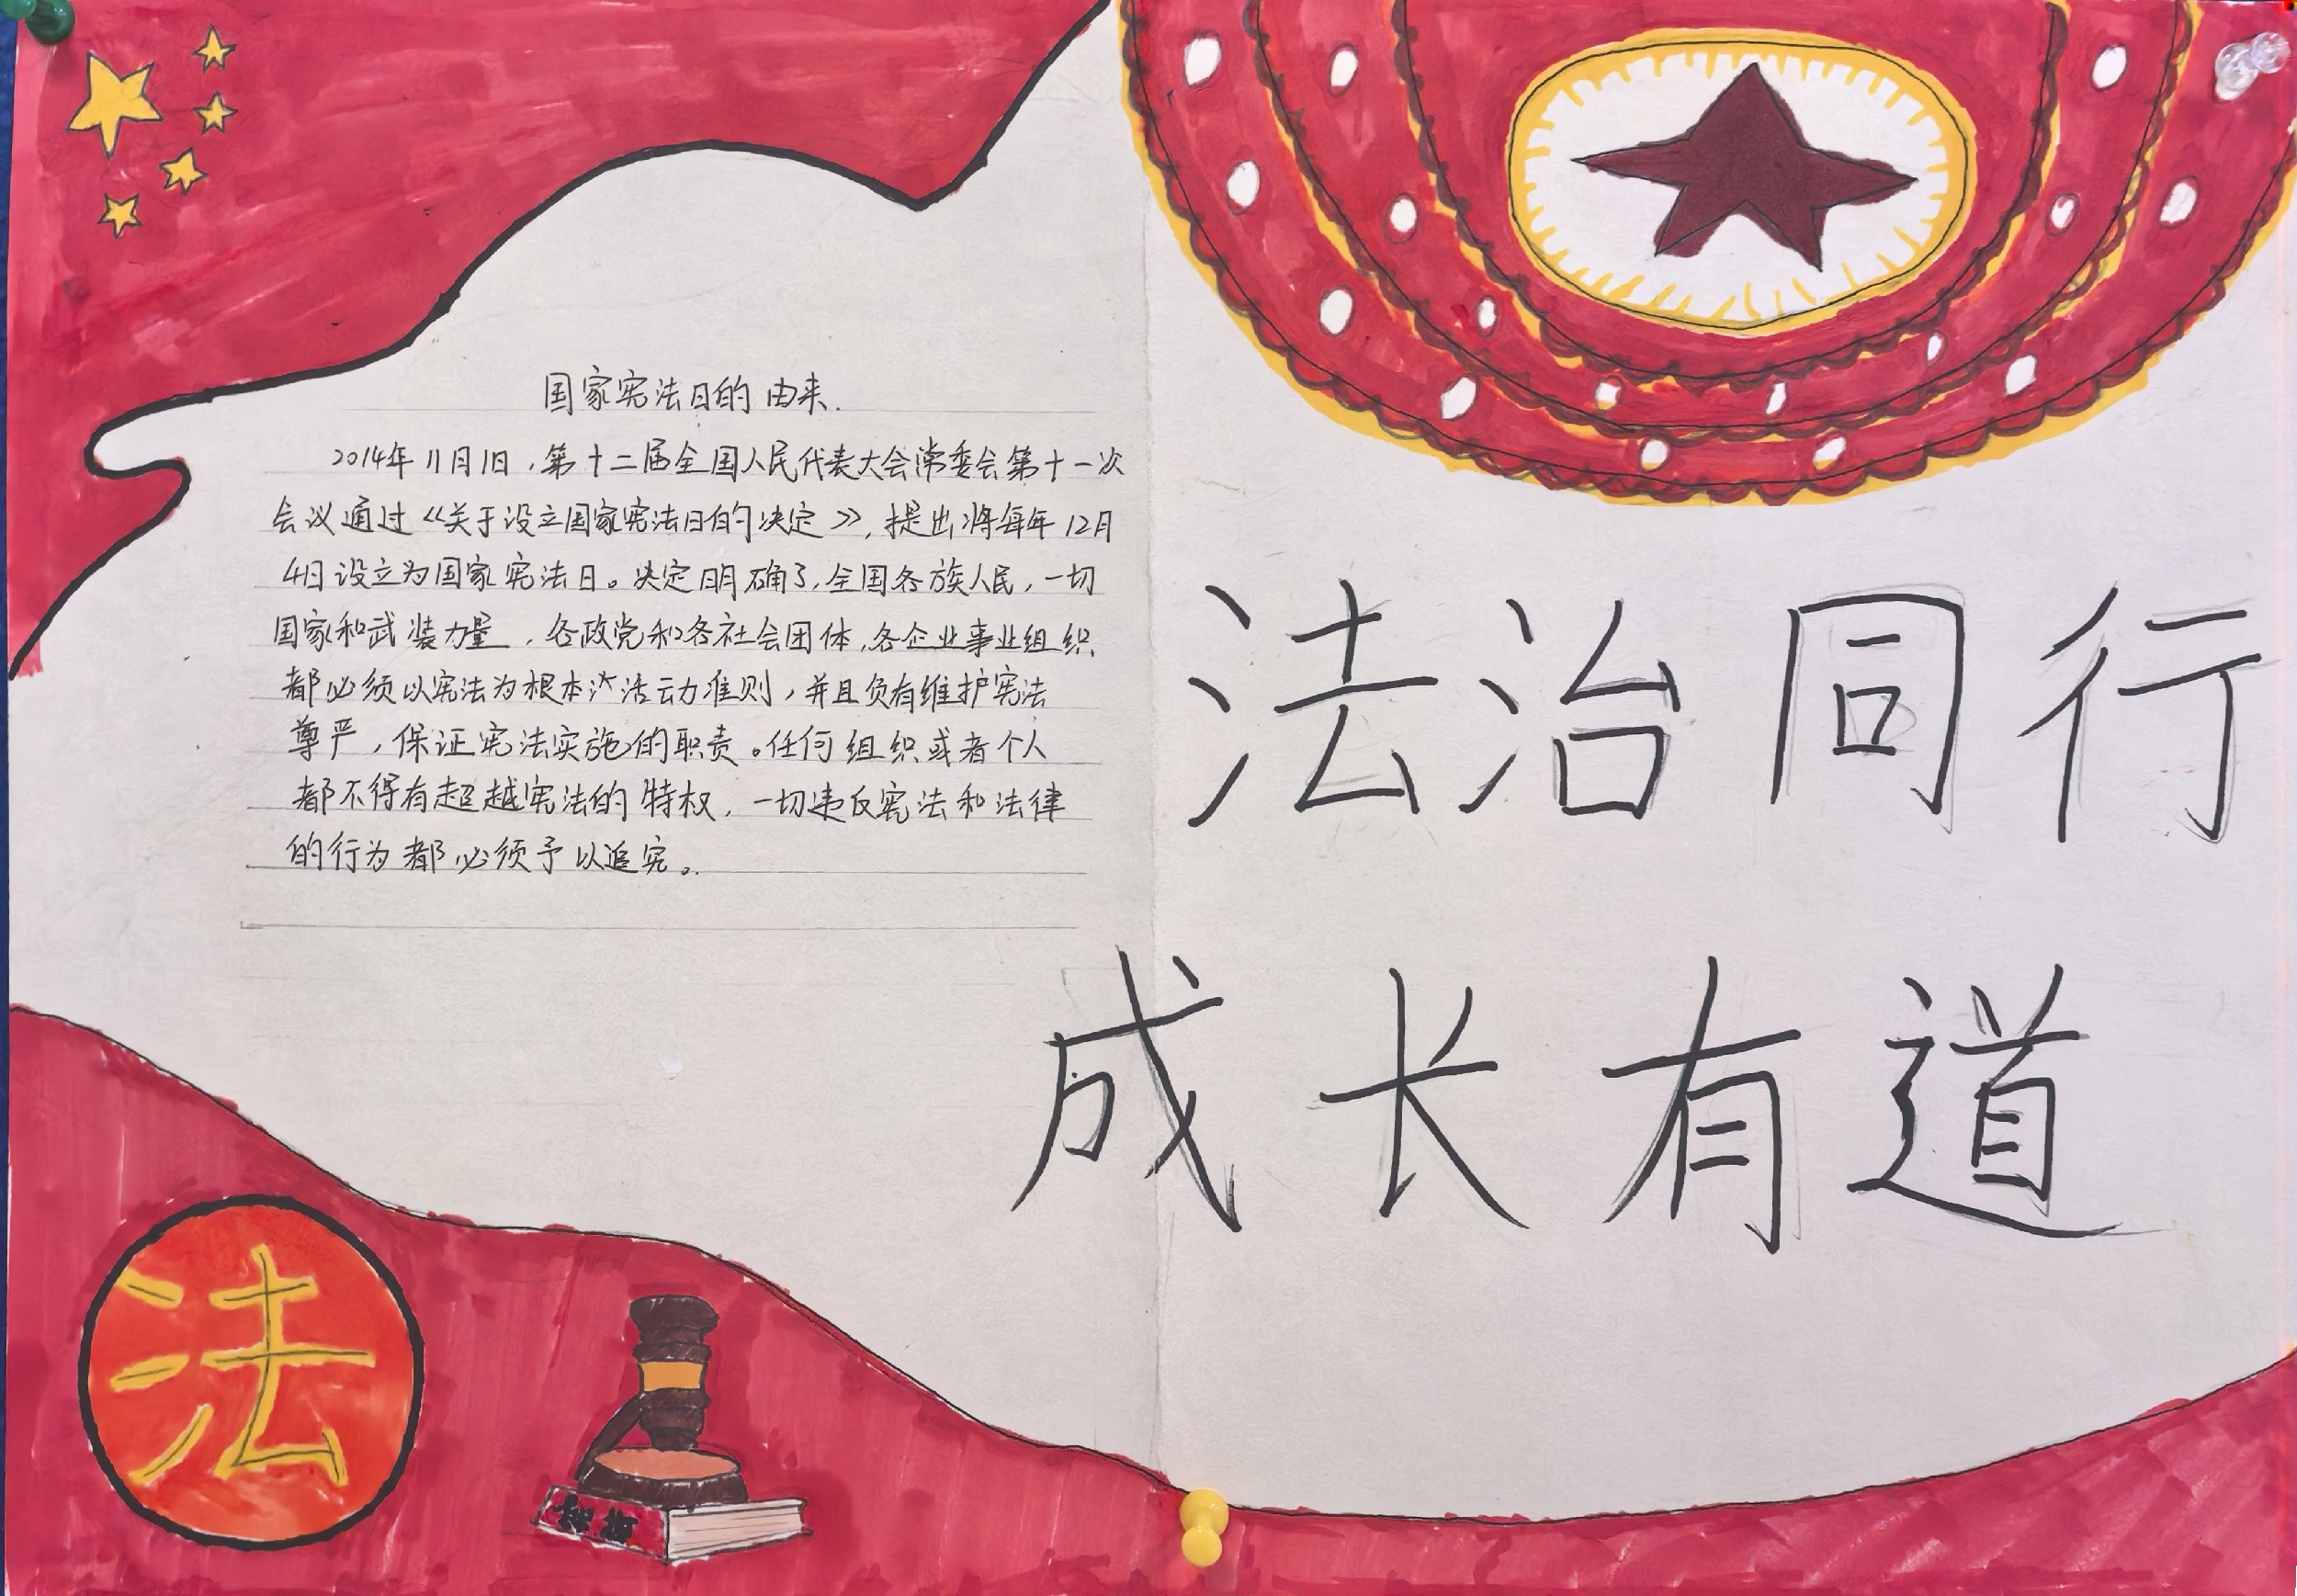 国家宪法日的由来.
2014年11月1日，第十二届全国人民代表大会常委会第十一次
会议通过《关于设立国家宪法日的决定》，提出将每年12月
4日设立为国家宪法日。决定明确了，全国各族人民，一切
国家和武装力量，各政党和各社会团体，各企业事业组织
都必须以宪法为根本活动准则，并且负有维护宪法
尊严，保证宪法实施的职责。任何组织或者个人
都不得有超越宪法的特权，一切违反宪法和法律
的行为都必须予以追究。
法治同行
成长有道
法